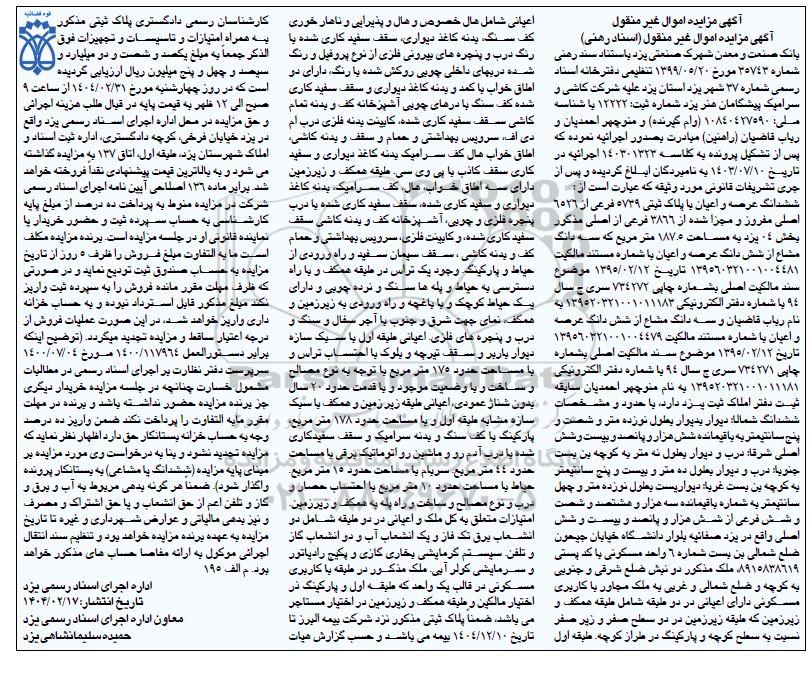 آگهی مزایده اموال غیر منقول
آگهی مزایده اموال غیر منقول (اسناد رهنی)
بانک صنعت و معدن شهرک صنعتی یزد باستناد سند رهنی
شماره ۳۵۷۴۳ مورخ ۱۳۹۹/۰۵/۲۰ تنظیمی دفترخانه اسناد
رسمی شماره ۳۷ شهر یزد استان یزد علیه شرکت کاشی و
سرامیک پیشگامان هنر یزد شماره ثبت: ۱۲۲۲۲ با شناسه
ملی: ۱۰۸۴۰۴۲۷۵۹۰ (وام گیرنده) و منوچهر احمدیان و
رباب قاضیان (راهنین) مبادرت بصدور اجرائیه نموده که
پس از تشکیل پرونده به کلاسه ۱۴۰۳۰۱۳۲۳ اجرائیه در
تاریخ ۱۴۰۳/۰۷/۱۰ به نامبردگان ابلاغ گردیده و پس از
جری تشریفات قانونی مورد وثیقه که عبارت است از:
ششدانگ عرصه و اعیان با پلاک ثبتی ۵۷۳۹ فرعی از ۶۰۲۶
اصلی مفروز و مجزا شده از ۳۸۶۶ فرعی از اصلی مذکور
بخش ۰۴ یزد به مساحت ۱۸۷.۵ متر مربع که سه دانگ
مشاع از شش دانگ عرصه و اعیان با شماره مستند مالکیت
۱۳۹۵۶۰۳۲۱۰۰۱۰۰۴۴۸۱ تاریخ ۱۳۹۵/۰۲/۱۲ موضوع
سند مالکیت اصلی بشماره چاپی ۷۳۴۲۷۲ سری ج سال
۹۴ با شماره دفتر الکترونیکی ۱۳۹۵۲۰۳۲۱۰۰۱۰۱۱۱۸۳ به
نام رباب قاضیان و سه دانگ مشاع از شش دانگ عرصه
و اعیان با شماره مستند مالکیت ۱۳۹۵۶۰۳۲۱۰۰۱۰۰۴۴۷۹
تاریخ ۱۳۹۵/۰۲/۱۲ موضوع سند مالکیت اصلی بشماره
چاپی ۷۳۴۲۷۱ سری ج سال ۹۴ با شماره دفتر الکترونیکی
۱۳۹۵۲۰۳۲۱۰۰۱۰۱۱۱۸۱ به نام منوچهر احمدیان سابقه
ثبت دفتر املاک ثبت یزد دارد، با حدود و مشخصات
ششدانگ شمالا: دیوار بدیوار بطول نوزده متر و شصت و
پنج سانتیمتر به باقیمانده شش هزار و پانصد و بیست و شش
اصلی شرقا: درب و دیوار بطول نه متر به کوچه بن بست
جنوبا: درب و دیوار بطول ده متر و بیست و پنج سانتیمتر
به کوچه بن بست غربا: دیواریست بطول نوزده متر و چهل
سانتیمتر به شماره باقیمانده سه هزار و هشتصد و شصت
و شش فرعی از شش هزار و پانصد و بیست و شش
اصلی واقع در یزد صفائیه بلوار دانشگاه خیابان جیحون
ضلع شمالی بن بست شماره ۶ واحد مسکونی با کد پستی
۸۹۱۵۸۳۸۶۱۹، ملک مذکور دو نبش ضلع شرقی و جنوبی
به کوچه و ضلع شمالی و غربی به ملک مجاور با کاربری
مسکونی دارای اعیانی در دو طبقه شامل طبقه همکف و
زیرزمین که طبقه زیرزمین در دو سطح صفر و زیر صفر
نسبت به سطح کوچه و پارکینگ در طراز کوچه. طبقه اول
اعیانی شامل هال خصوص و هال و پذیرایی و ناهار خوری
کف سنگ، بدنه کاغذ دیواری، سقف سفید کاری شده با
رنگ درب و پنجره های بیرونی فلزی از نوع پروفیل و رنگ
شده دربهای داخلی چوبی روکش شده با رنگ، دارای دو
اطاق خواب با کمد و بدنه کاغذ دیواری و سقف سفید کاری
شده کف سنگ با درهای چوبی آشپزخانه کف و بدنه تمام
کاشی سقف سفید کاری شده، کابینت بدنه فلزی درب ام
دی اف، سرویس بهداشتی و حمام و سقف و بدنه کاشی،
اطاق خواب هال کف سرامیک بدنه کاغذ دیواری و سفید
کاری سقف کاذب با پی وی سی. طبقه همکف و زیرزمین
دارای سه اطاق خواب، هال، کف سرامیک، بدنه کاغذ
دیواری و سفید کاری شده، سقف سفید کاری شده با درب
پنجره فلزی و چوبی، آشپزخانه کف و بدنه کاشی سقف
سفید کاری شده، و کابینت فلزی، سرویس بهداشتی و حمام
کف و بدنه کاشی ، سقف سیمان سفید و راه ورودی از
حیاط و پارکینگ. وجود یک تراس در طبقه همکف و با راه
دسترسی به حیاط و پله ها سنگ و نرده چوبی و دارای
یک حیاط کوچک و با باغچه و راه ورودی به زیرزمین و
همکف. نمای جهت شرق و جنوب با آجر سفال و سنگ و
درب و پنجره های فلزی. اعیانی طبقه اول با سبک سازه
دیوار باربر و سقف تیرچه و بلوک با احتساب تراس و
با مساحت حدود ۱۷۵ متر مربع با توجه به نوع مصالح
و ساخت و با وضعیت موجود و با قدمت حدود ۲۰ سال
بدون شناژ عمودی، اعیانی طبقه زیر زمین و همکف با سبک
سازه مشابه طبقه اول و با مساحت حدود ۱۷۸ متر مربع
پارکینگ با کف سنگ و بدنه سرامیک و سقف سفیدکاری
شده با درب آدم رو و ماشین رو اتوماتیک برقی با مساحت
حدود ۴۴ متر مربع. سربام با مساحت حدود ۱۵ متر مربع
حیاط با مساحت حدود ۱۰ متر مربع با احتساب حصار و
درب و نوع مصالح و ساخت و راه پله به همکف و زیرزمین
امتیازات متعلق به کل ملک و اعیانی در دو طبقه شامل دو
انشعاب برق تک فاز و یک انشعاب آب و دو انشعاب گاز
و تلفن. سیستم گرمایشی بخاری گازی و پکیج رادیاتور
و سرمایشی کولر آبی. ملک مذکور در طبقه با کاربری
مسکونی در قالب یک واحد که طبقه اول و پارکینگ در
اختیار مالکین و طبقه همکف و زیرزمین در اختیار مستاجر
می باشد، ضمنا پلاک ثبتی مذکور نزد شرکت بیمه البرز تا
تاریخ ۱۴۰۴/۱۲/۱۰ بیمه می باشد و حسب گزارش هیات
کارشناسان رسمی دادگستری پلاک ثبتی مذکور
به همراه امتیازات و تاسیسات و تجهیزات فوق
الذکر جمعاً به مبلغ یکصد و شصت و دو میلیارد و
سیصد و چهل و پنج میلیون ریال ارزیابی گردیده
است که در روز چهارشنبه مورخ ۱۴۰۴/۰۲/۳۱ از ساعت ۹
صبح الی ۱۲ ظهر به قیمت پایه در قبال طلب هزینه اجرائی
و حق مزایده در محل اداره اجرای اسناد رسمی یزد واقع
در یزد خیابان فرخی، کوچه دادگستری، اداره ثبت اسناد و
املاک شهرستان یزد، طبقه اول، اتاق ۱۳۷ به مزایده گذاشته
می شود و به بالاترین قیمت پیشنهادی نقداً فروخته خواهد
شد. برابر ماده ۱۳۶ اصلاحی آیین نامه اجرای اسناد رسمی
شرکت در مزایده منوط به پرداخت ده درصد از مبلغ پایه
کارشناسی به حساب سپرده ثبت و حضور خریدار یا
نماینده قانونی او در جلسه مزایده است. برنده مزایده مکلف
است ما به التفاوت مبلغ فروش را ظرف ۵ روز از تاریخ
مزایده به حساب صندوق ثبت تودیع نماید و در صورتی
که ظرف مهلت مقرر مانده فروش را به سپرده ثبت واریز
نکند مبلغ مذکور قابل استرداد نبوده و به حساب خزانه
داری واریز خواهد شد، در این صورت عملیات فروش از
درجه اعتبار ساقط و مزایده تجدید میگردد. (توضیح اینکه
برابر دستورالعمل ۱۴۰۰/۱۱۷۹۶۴ مورخ ۱۴۰۰/۰۷/۰۴
سرپرست دفتر نظارت بر اجرای اسناد رسمی در مطالبات
مشمول خسارت چنانچه در جلسه مزایده خریدار دیگری
جز برنده مزایده حضور نداشته باشد و برنده در مهلت
مقرر مابه التفاوت را پرداخت نکند ضمن واریز ده درصد
وجه به حساب خزانه بستانکار حق دارد اظهار نظر نماید که
مزایده تجدید نشود و بنا به درخواست وی مورد مزایده بر
مبنای پایه مزایده (ششدانگ یا مشاعی) به بستانکار پرونده
واگذار شود). ضمنا هر گونه بدهی مربوط به آب و برق و
گاز و تلفن اعم از حق انشعاب و یا حق اشتراک و مصرف
و نیز بدهی مالیاتی و عوارض شهرداری و غیره تا تاریخ
مزایده به عهده برنده مزایده خواهد بود و تنظیم سند انتقال
اجرائی موکول به ارائه مفاصا حساب های مذکور خواهد
بود. م الف ۱۹۵
اداره اجرای اسناد رسمی یزد
تاریخ انتشار: ۱۴۰۴/۰۲/۱۷
معاون اداره اجرای اسناد رسمی یزد
حمیده سلیمانشاهی یزد
قوه قضائیه
۰۲۱-۸۸۳۴۹۶۷۰-۵